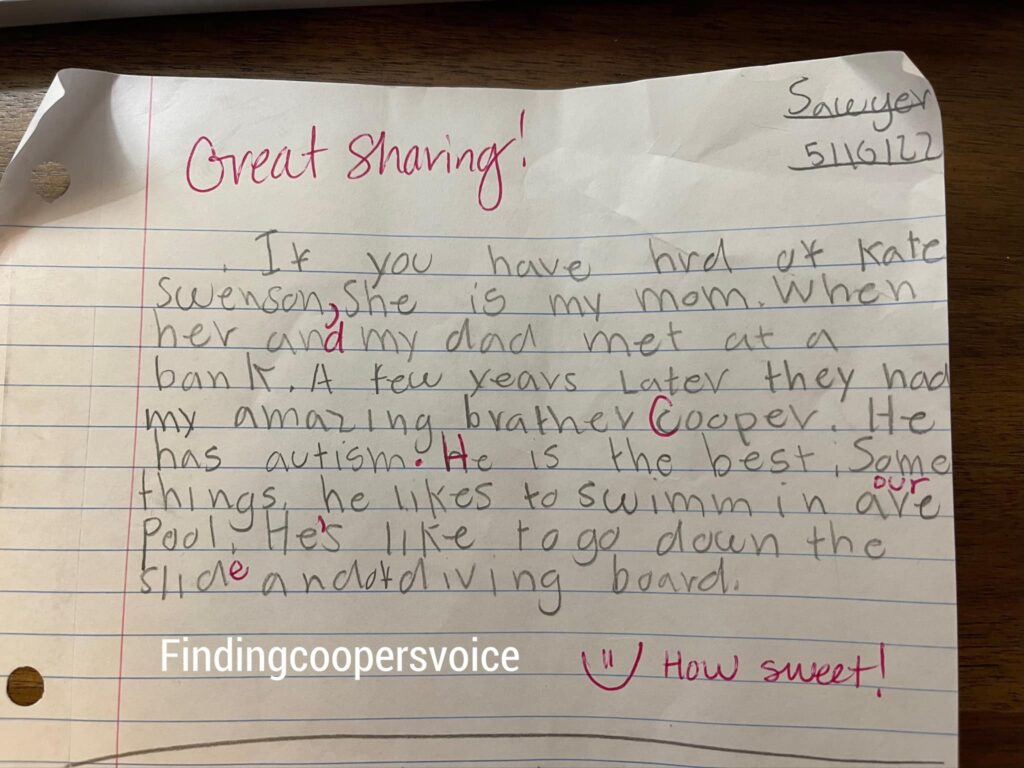 Sawyer
5/16/22
Great Sharing!
If you have hrd of Kate
Swenson, she is my mom. When
her and my dad met at a
bank. A few years Later they had
my amazing brather Cooper. He
has autism. He is the best. Some
our
things, he likes to swimm in are
Pool. He's like to go down the
slide and of diving board.
Findingcoopersvoice
How sweet!